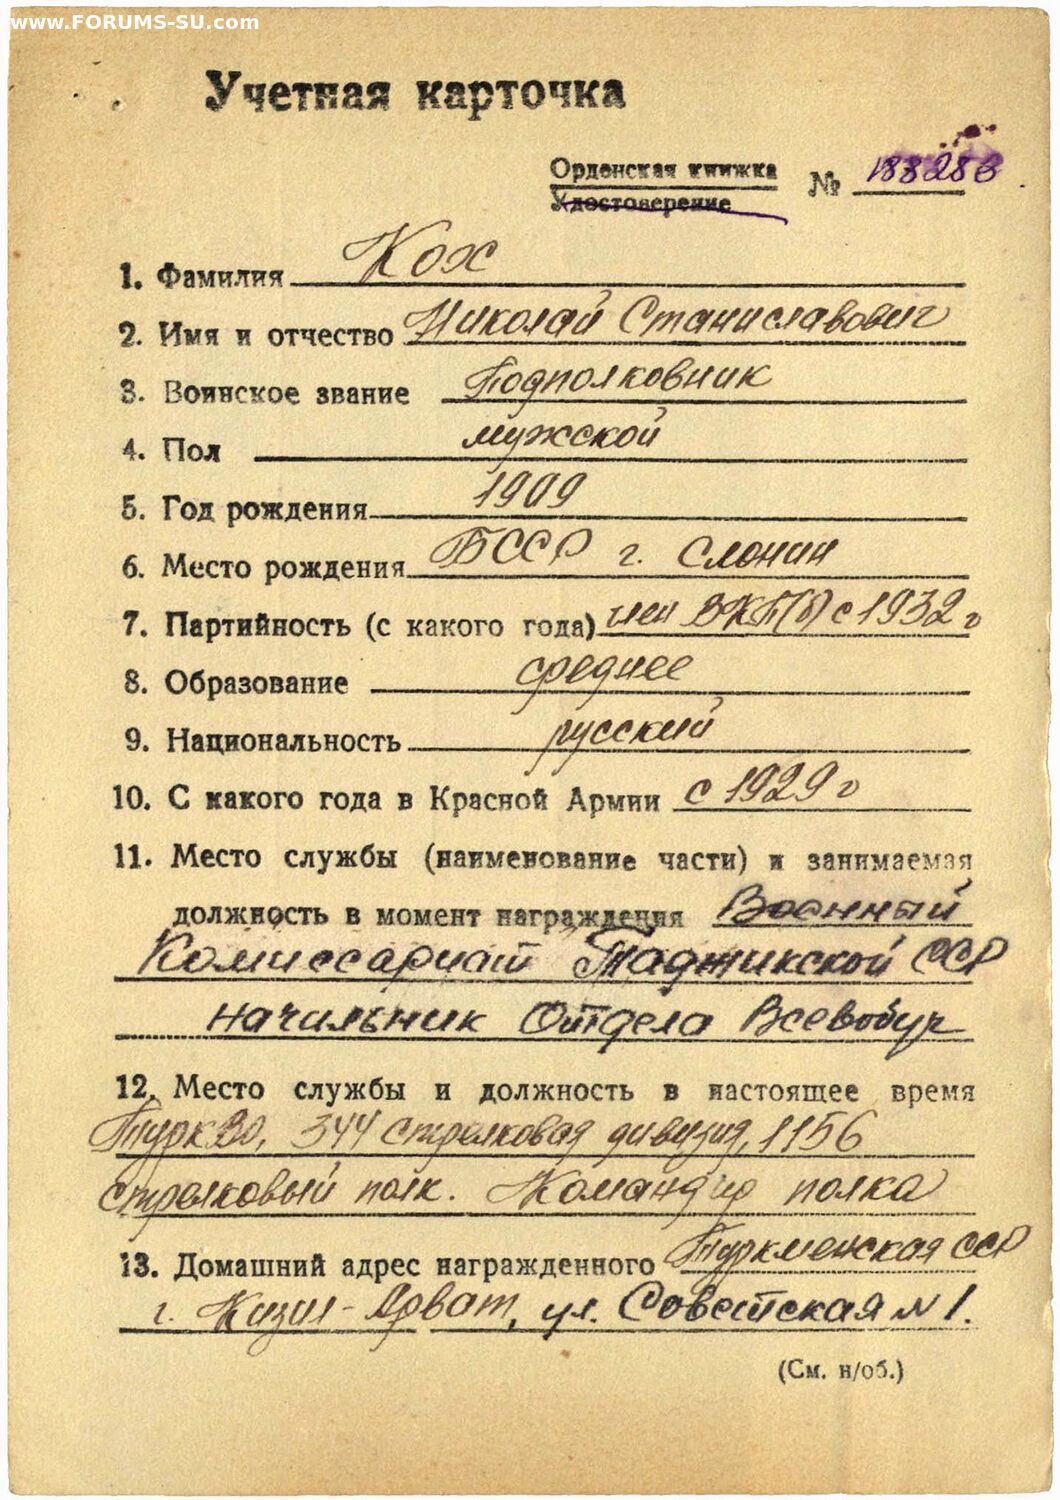 www.FORUMS-SU.com
Учетная карточка
Орденская книжка
Удостоверение
№ 188288
1. Фамилия Кох
2. Имя и отчество Николай Станиславович
3. Воинское звание Подполковник
4. Пол мужской
5. Год рождения 1909
6. Место рождения БССР г. Слоним
7. Партийность (с какого года) член ВКП(б) с 1932 г
8. Образование среднее
9. Национальность русский
10. С какого года в Красной Армии с 1929 г
11. Место службы (наименование части) и занимаемая
должность в момент награждения Военный
Комиссариат Таджикской ССР
начальник Отдела Всевобуч
12. Место службы и должность в настоящее время
ТуркВо, 344 стрелковая дивизия, 1156
стрелковый полк. Командир полка
13. Домашний адрес награжденного Туркменская ССР
г. Кизил-Арват, ул. Советская № 1.
(См. н/об.)